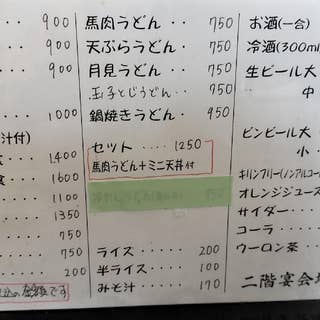 900
900
1000
汁付)
1400
食 1600
1100
1350
750
200
金額です
馬肉うどん・・ 750
天ぷらうどん・ 750
月見うどん・・ 750
玉子とじうどん・ 750
鍋焼きうどん・ 950
セット ・・・・ 1250
馬肉うどん+ミニ天丼付
ライス・・ 200
半ライス・ 100
みそ汁・・ 170
お酒(一合)
冷酒(300ml
生ビール大
中
ビンビール大
小
キリンフリー(ノンアルコー
オレンジジュース
サイダー
コーラ
ウーロン茶
二階宴会場